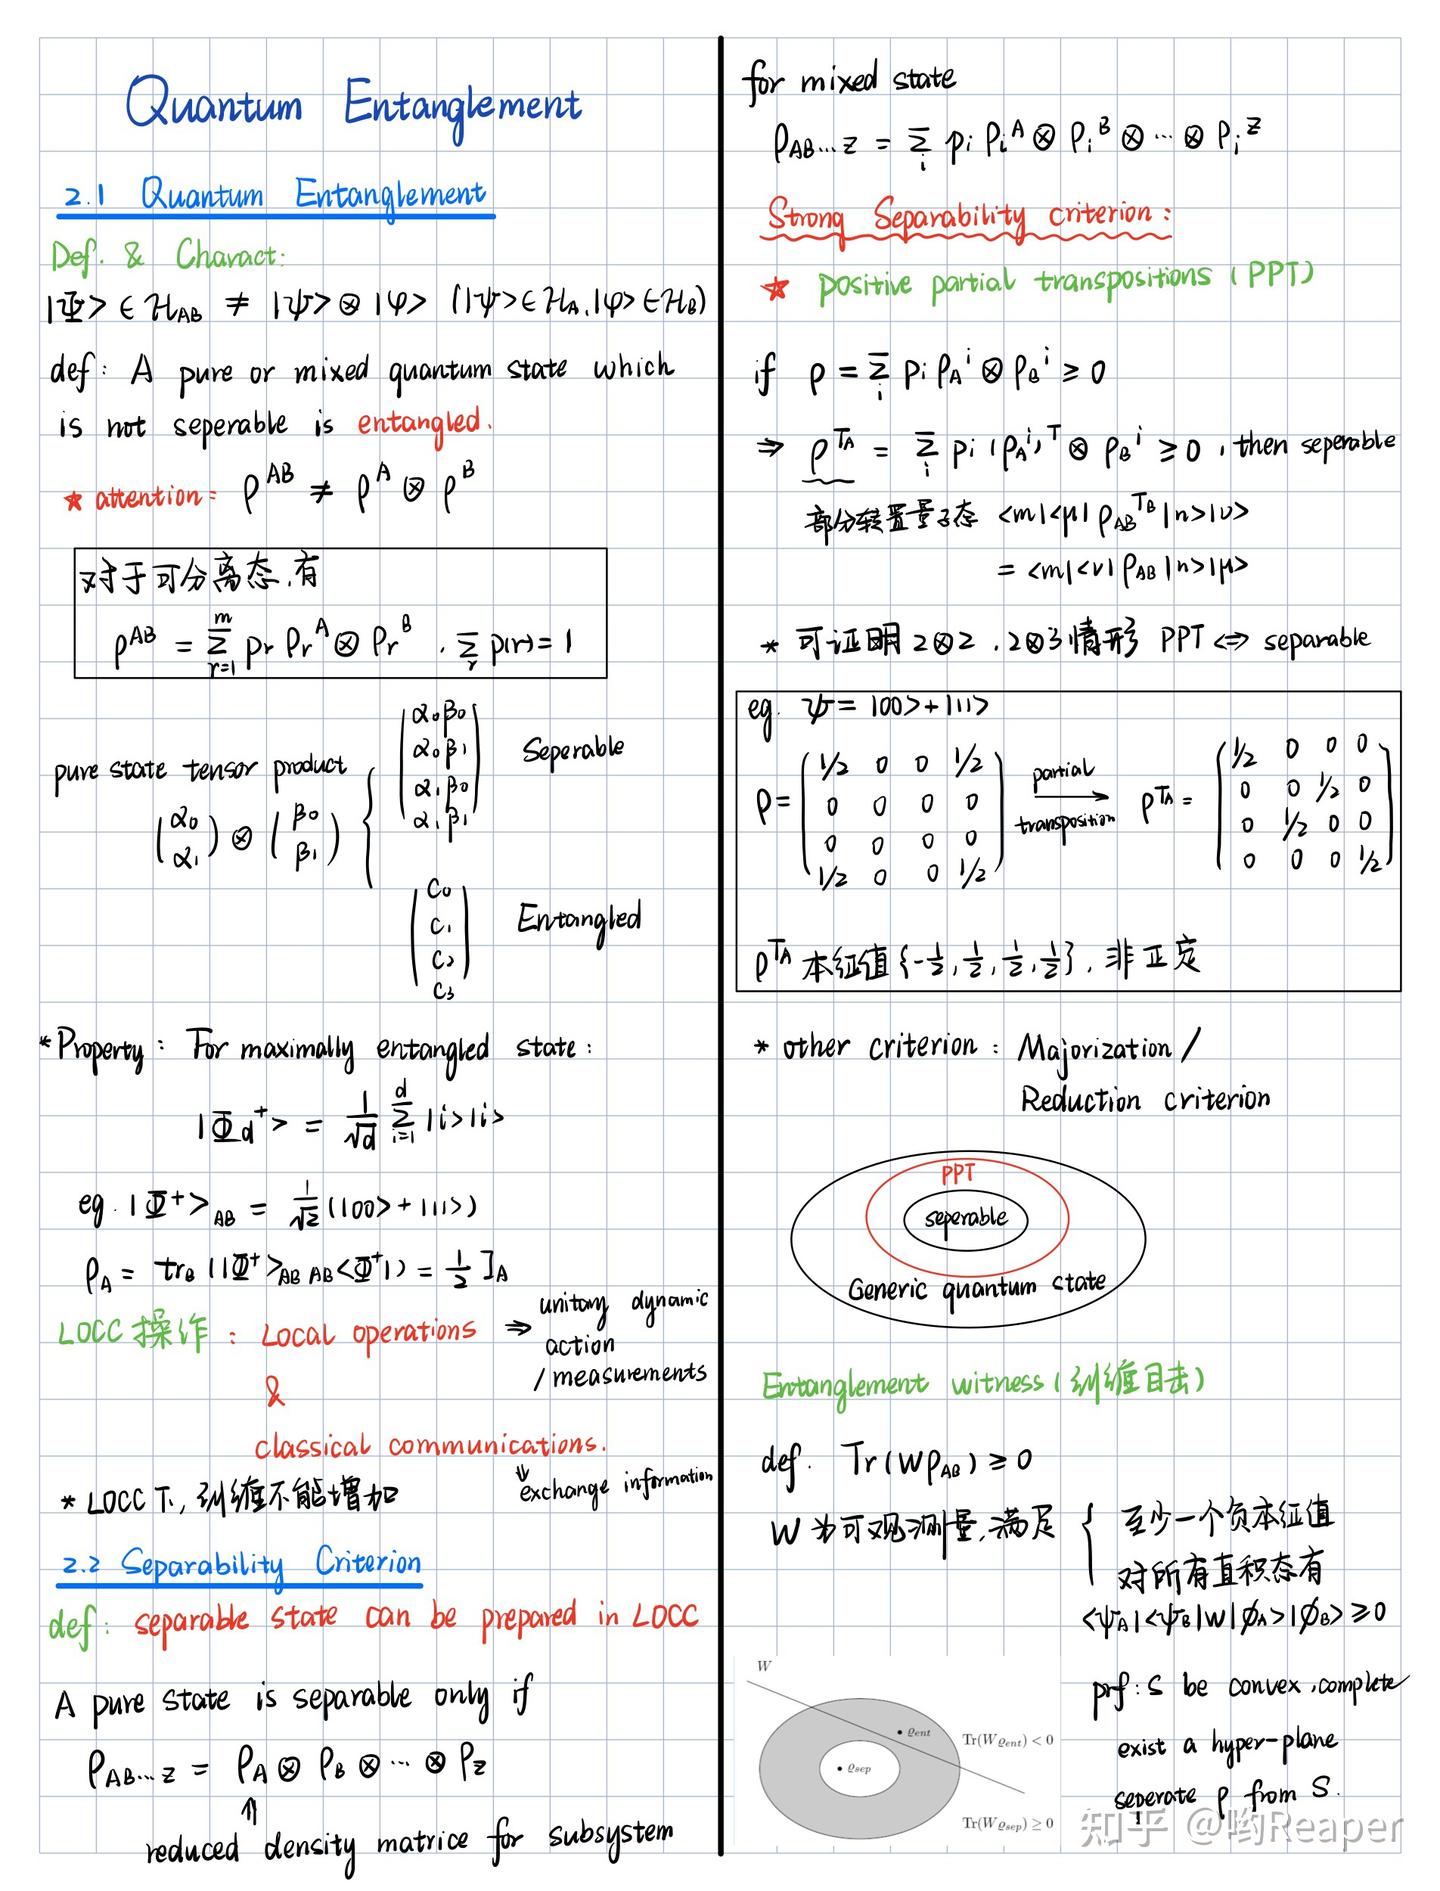 Quantum Entanglement
2.1 Quantum Entanglement
Def. & Charact:
|Φ> ∈ ℋ_AB ≠ |ψ> ⊗ |φ> (|ψ> ∈ ℋ_A, |φ> ∈ ℋ_B)
def: A pure or mixed quantum state which
is not seperable is entangled.
★ attention: ρ^AB ≠ ρ^A ⊗ ρ^B
对于可分离态,有
ρ^AB = Σ_{r=1}^m p_r ρ_r^A ⊗ ρ_r^B , Σ_r p(r) = 1
pure state tensor product
(α₀ α₁) ⊗ (β₀ β₁) {
(α₀β₀ α₀β₁ α₁β₀ α₁β₁) Seperable
(C₀ C₁ C₂ C₃) Entangled
* Property: For maximally entangled state:
|Φ_d^+> = 1/√d Σ_{i=1}^d |i>|i>
eg. |Φ^+>_AB = 1/√2 (|00> + |11>)
ρ_A = tr_B (|Φ^+>_AB AB<Φ^+|) = 1/2 I_A
LOCC 操作 : Local operations ⇒ unitary dynamic
action
/ measurements
&
classical communications.
⇓ exchange information
* LOCC下, 纠缠不能增加
2.2 Separability Criterion
def: separable state can be prepared in LOCC
A pure state is separable only if
ρ_AB...Z = ρ_A ⊗ ρ_B ⊗ ... ⊗ ρ_Z
⇑
reduced density matrice for subsystem
for mixed state
ρ_AB...Z = Σ_i p_i ρ_i^A ⊗ ρ_i^B ⊗ ... ⊗ ρ_i^Z
Strong Separability criterion:
★ positive partial transpositions (PPT)
if ρ = Σ_i p_i ρ_A^i ⊗ ρ_B^i ≥ 0
⇒ ρ^{T_A} = Σ_i p_i (ρ_A^i)^T ⊗ ρ_B^i ≥ 0 , then seperable
部分转置量子态 <m|<μ| ρ_AB^{T_B} |n>|ν>
= <m|<ν| ρ_AB |n>|μ>
* 可证明 2⊗2 , 2⊗3 情形 PPT ⇔ separable
eg. ψ = |00> + |11>
ρ = (1/2 0 0 1/2
0 0 0 0
0 0 0 0
1/2 0 0 1/2)
partial
transposition
ρ^{T_A} = (1/2 0 0 0
0 0 1/2 0
0 1/2 0 0
0 0 0 1/2)
ρ^{T_A} 本征值 {-1/2, 1/2, 1/2, 1/2}, 非正定
* other criterion: Majorization /
Reduction criterion
PPT
seperable
Generic quantum state
Entanglement witness (纠缠目击)
def. Tr(Wρ_AB) ≥ 0
W为可观测量,满足 {
至少一个负本征值
对所有直积态有
<ψ_A|<ψ_B|W|φ_A>|φ_B> ≥ 0
W
ϱ_ent
ϱ_sep
Tr(Wϱ_ent) < 0
Tr(Wϱ_sep) ≥ 0
prf: S be convex, complete
exist a hyper-plane
seperate ρ from S.
知乎 @哟Reaper